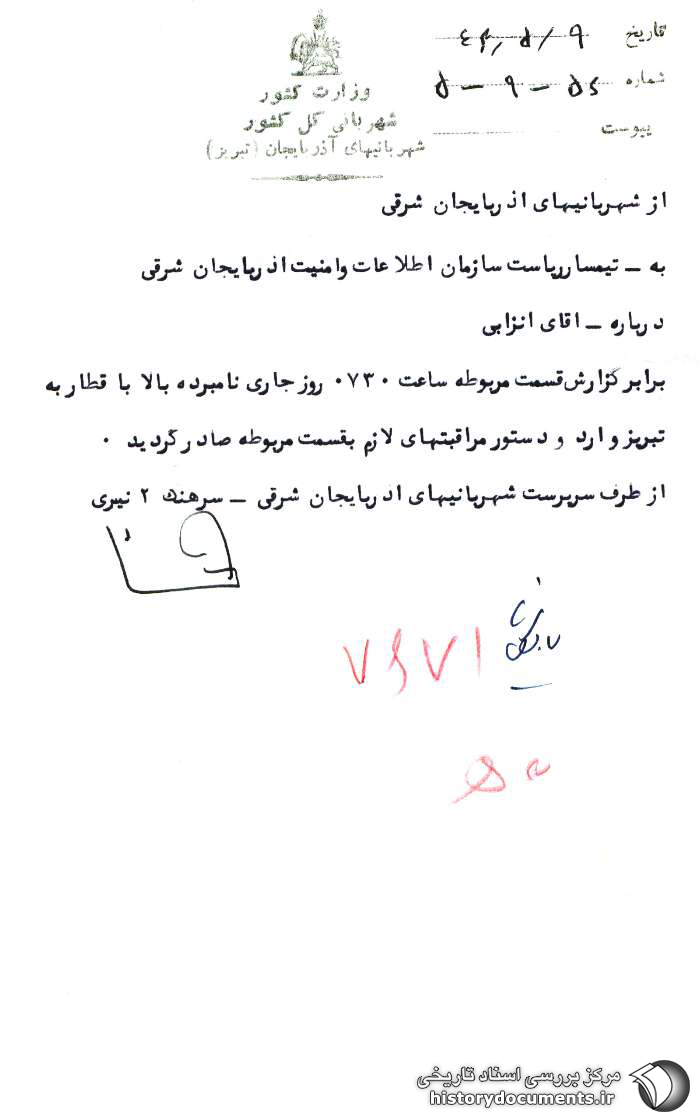 تاریخ ۴۳/۵/۹
شماره
پیوست
وزارت کشور
شهربانی کل کشور
شهربانیهای آذربایجان (تبریز)
از شهربانیهای اذربایجان شرقی
به – تیمسار ریاست سازمان اطلاعات وامنیت اذربایجان شرقی
درباره – اقای انزابی
برابر گزارش قسمت مربوطه ساعت ۰۷۳۰ روز جاری نامبرده بالا با قطار به
تبریز وارد و دستور مراقبتهای لازم بقسمت مربوطه صادر گردید ۰
از طرف سرپرست شهربانیهای اذربایجان شرقی – سرهنگ ۲ نیری
مرکز بررسی اسناد تاریخی
historydocuments.ir